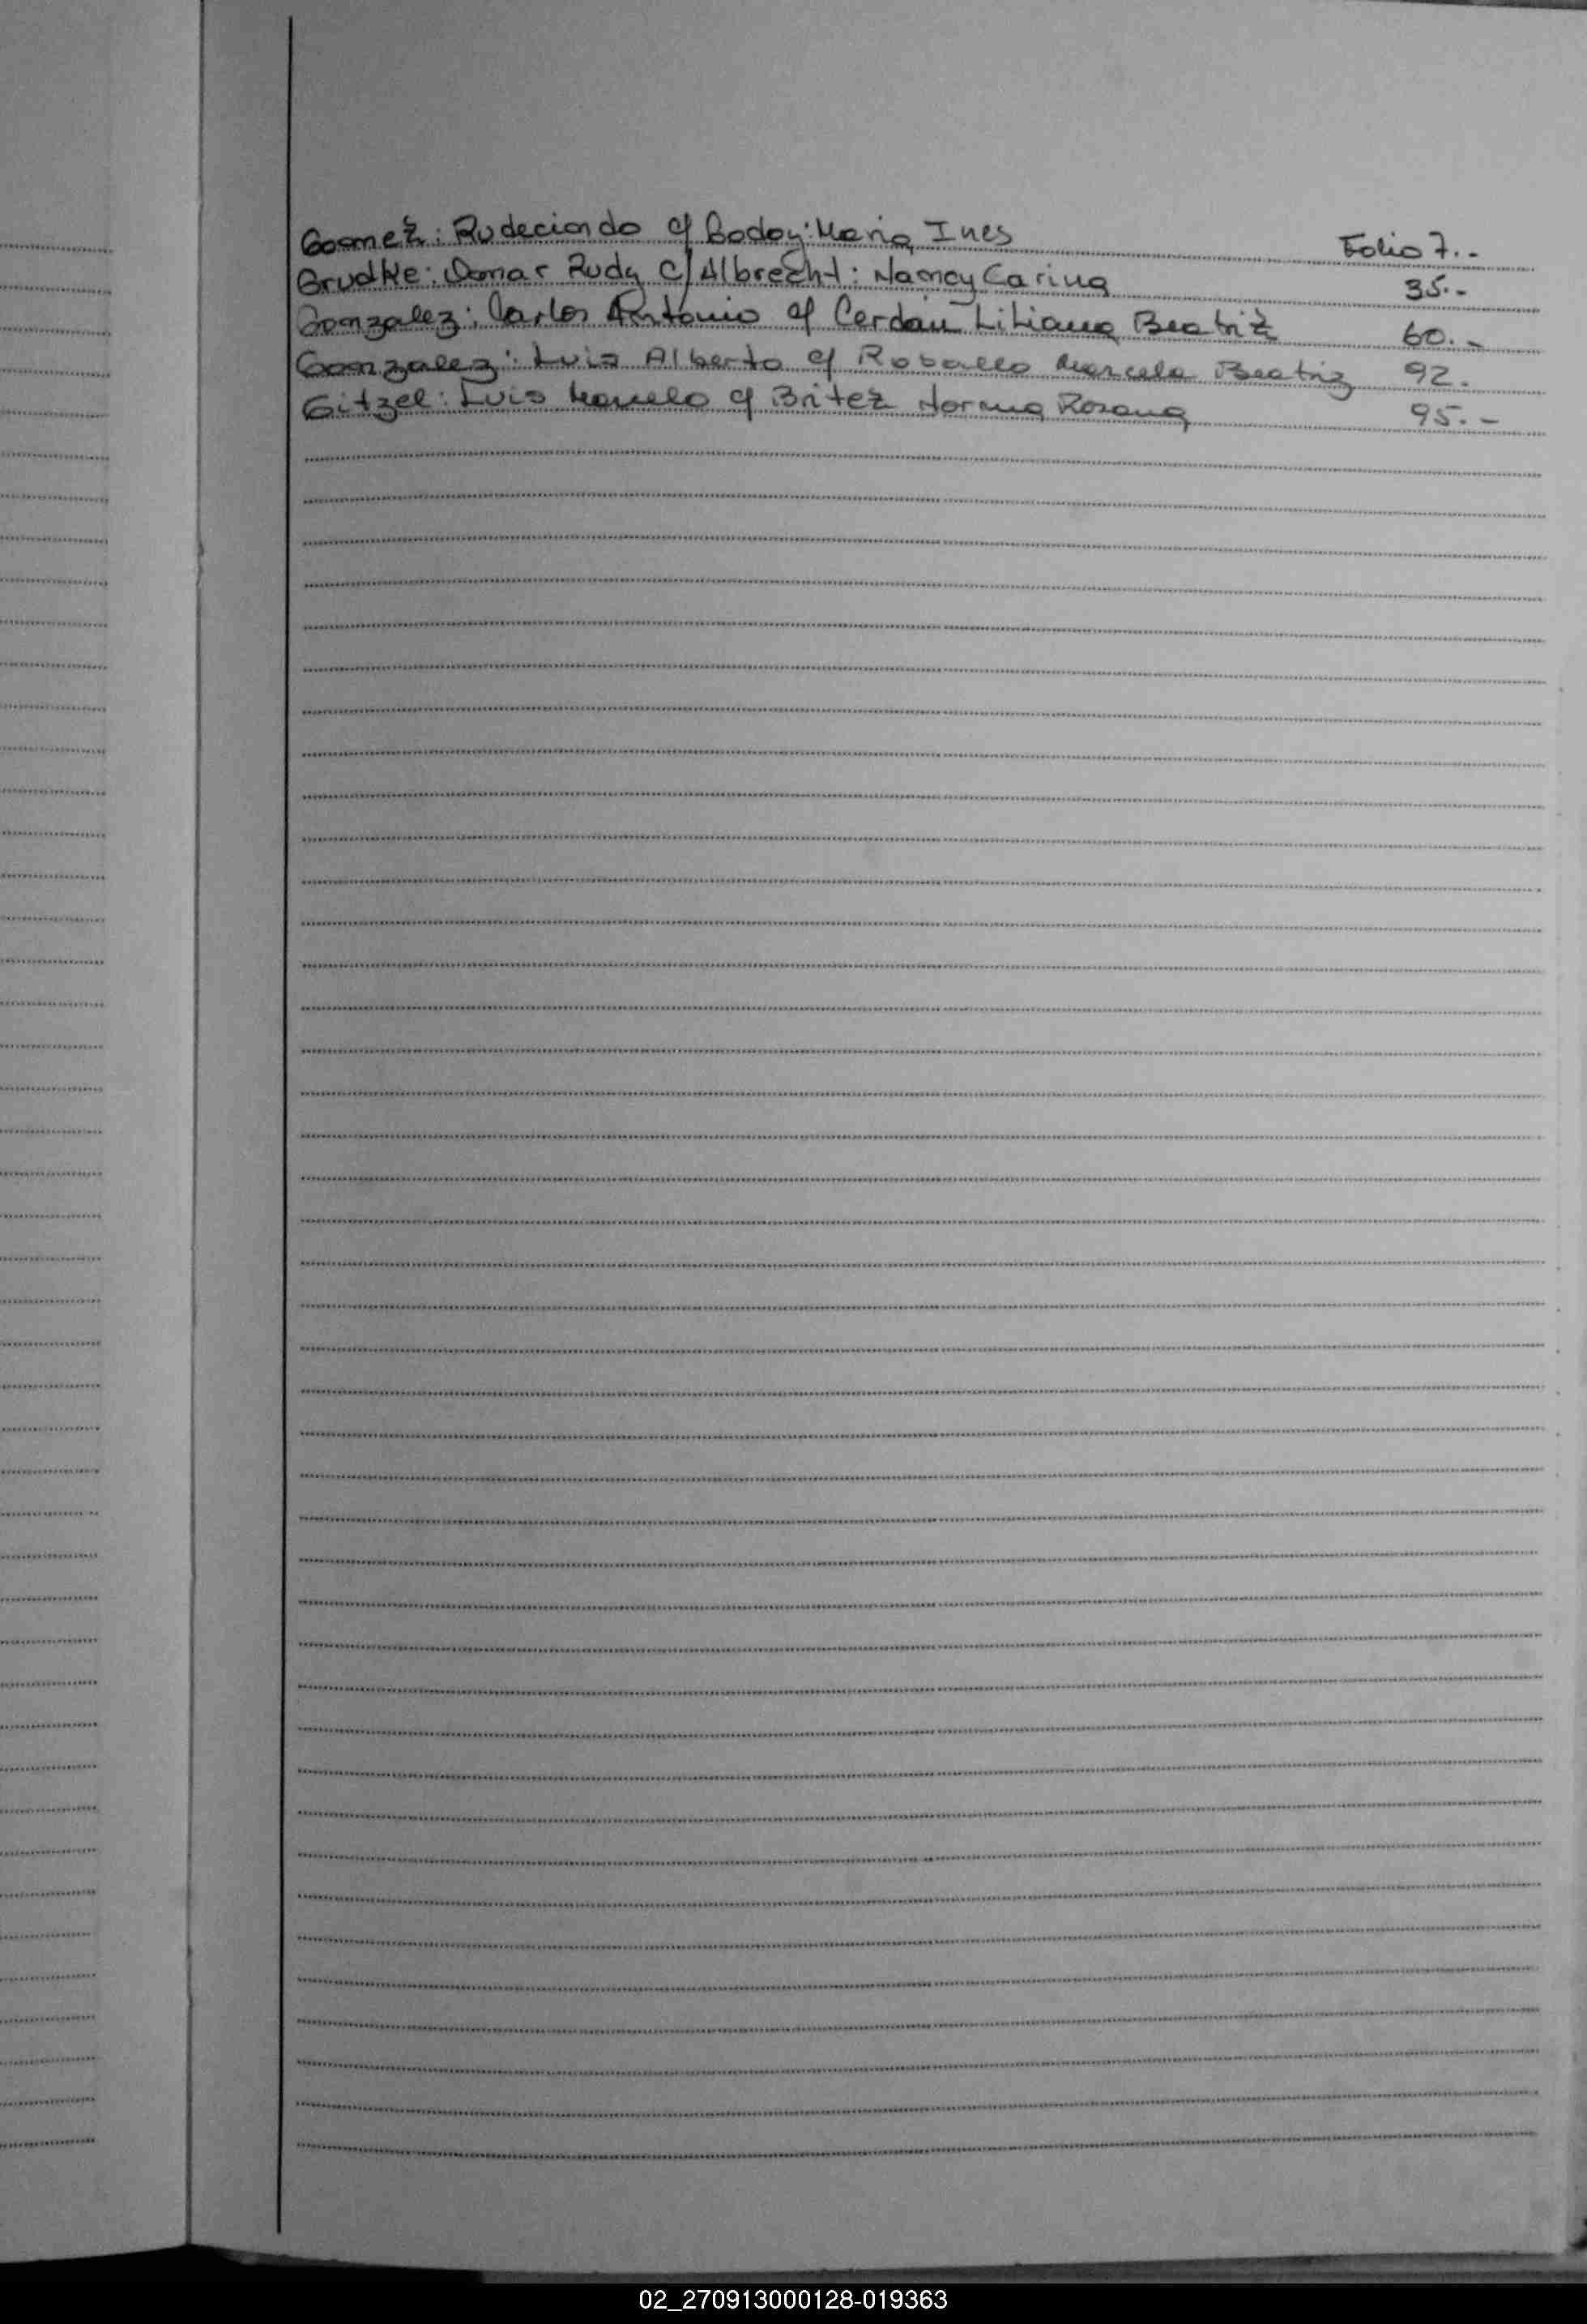 Gomez: Rudeciondo c/ Godoy: Maria Ines Folio 7.-
Grudke: Omar Rudy c/ Albrecht: Nancy Carina 35.-
Gonzalez: Carlos Antonio c/ Cerdan Liliana Beatriz 60.-
Gonzalez: Luis Alberto c/ Roballo Marcela Beatriz 92.
Gitzel: Luis c/ Britez Norma Rosana 95.-
02_270913000128-019363